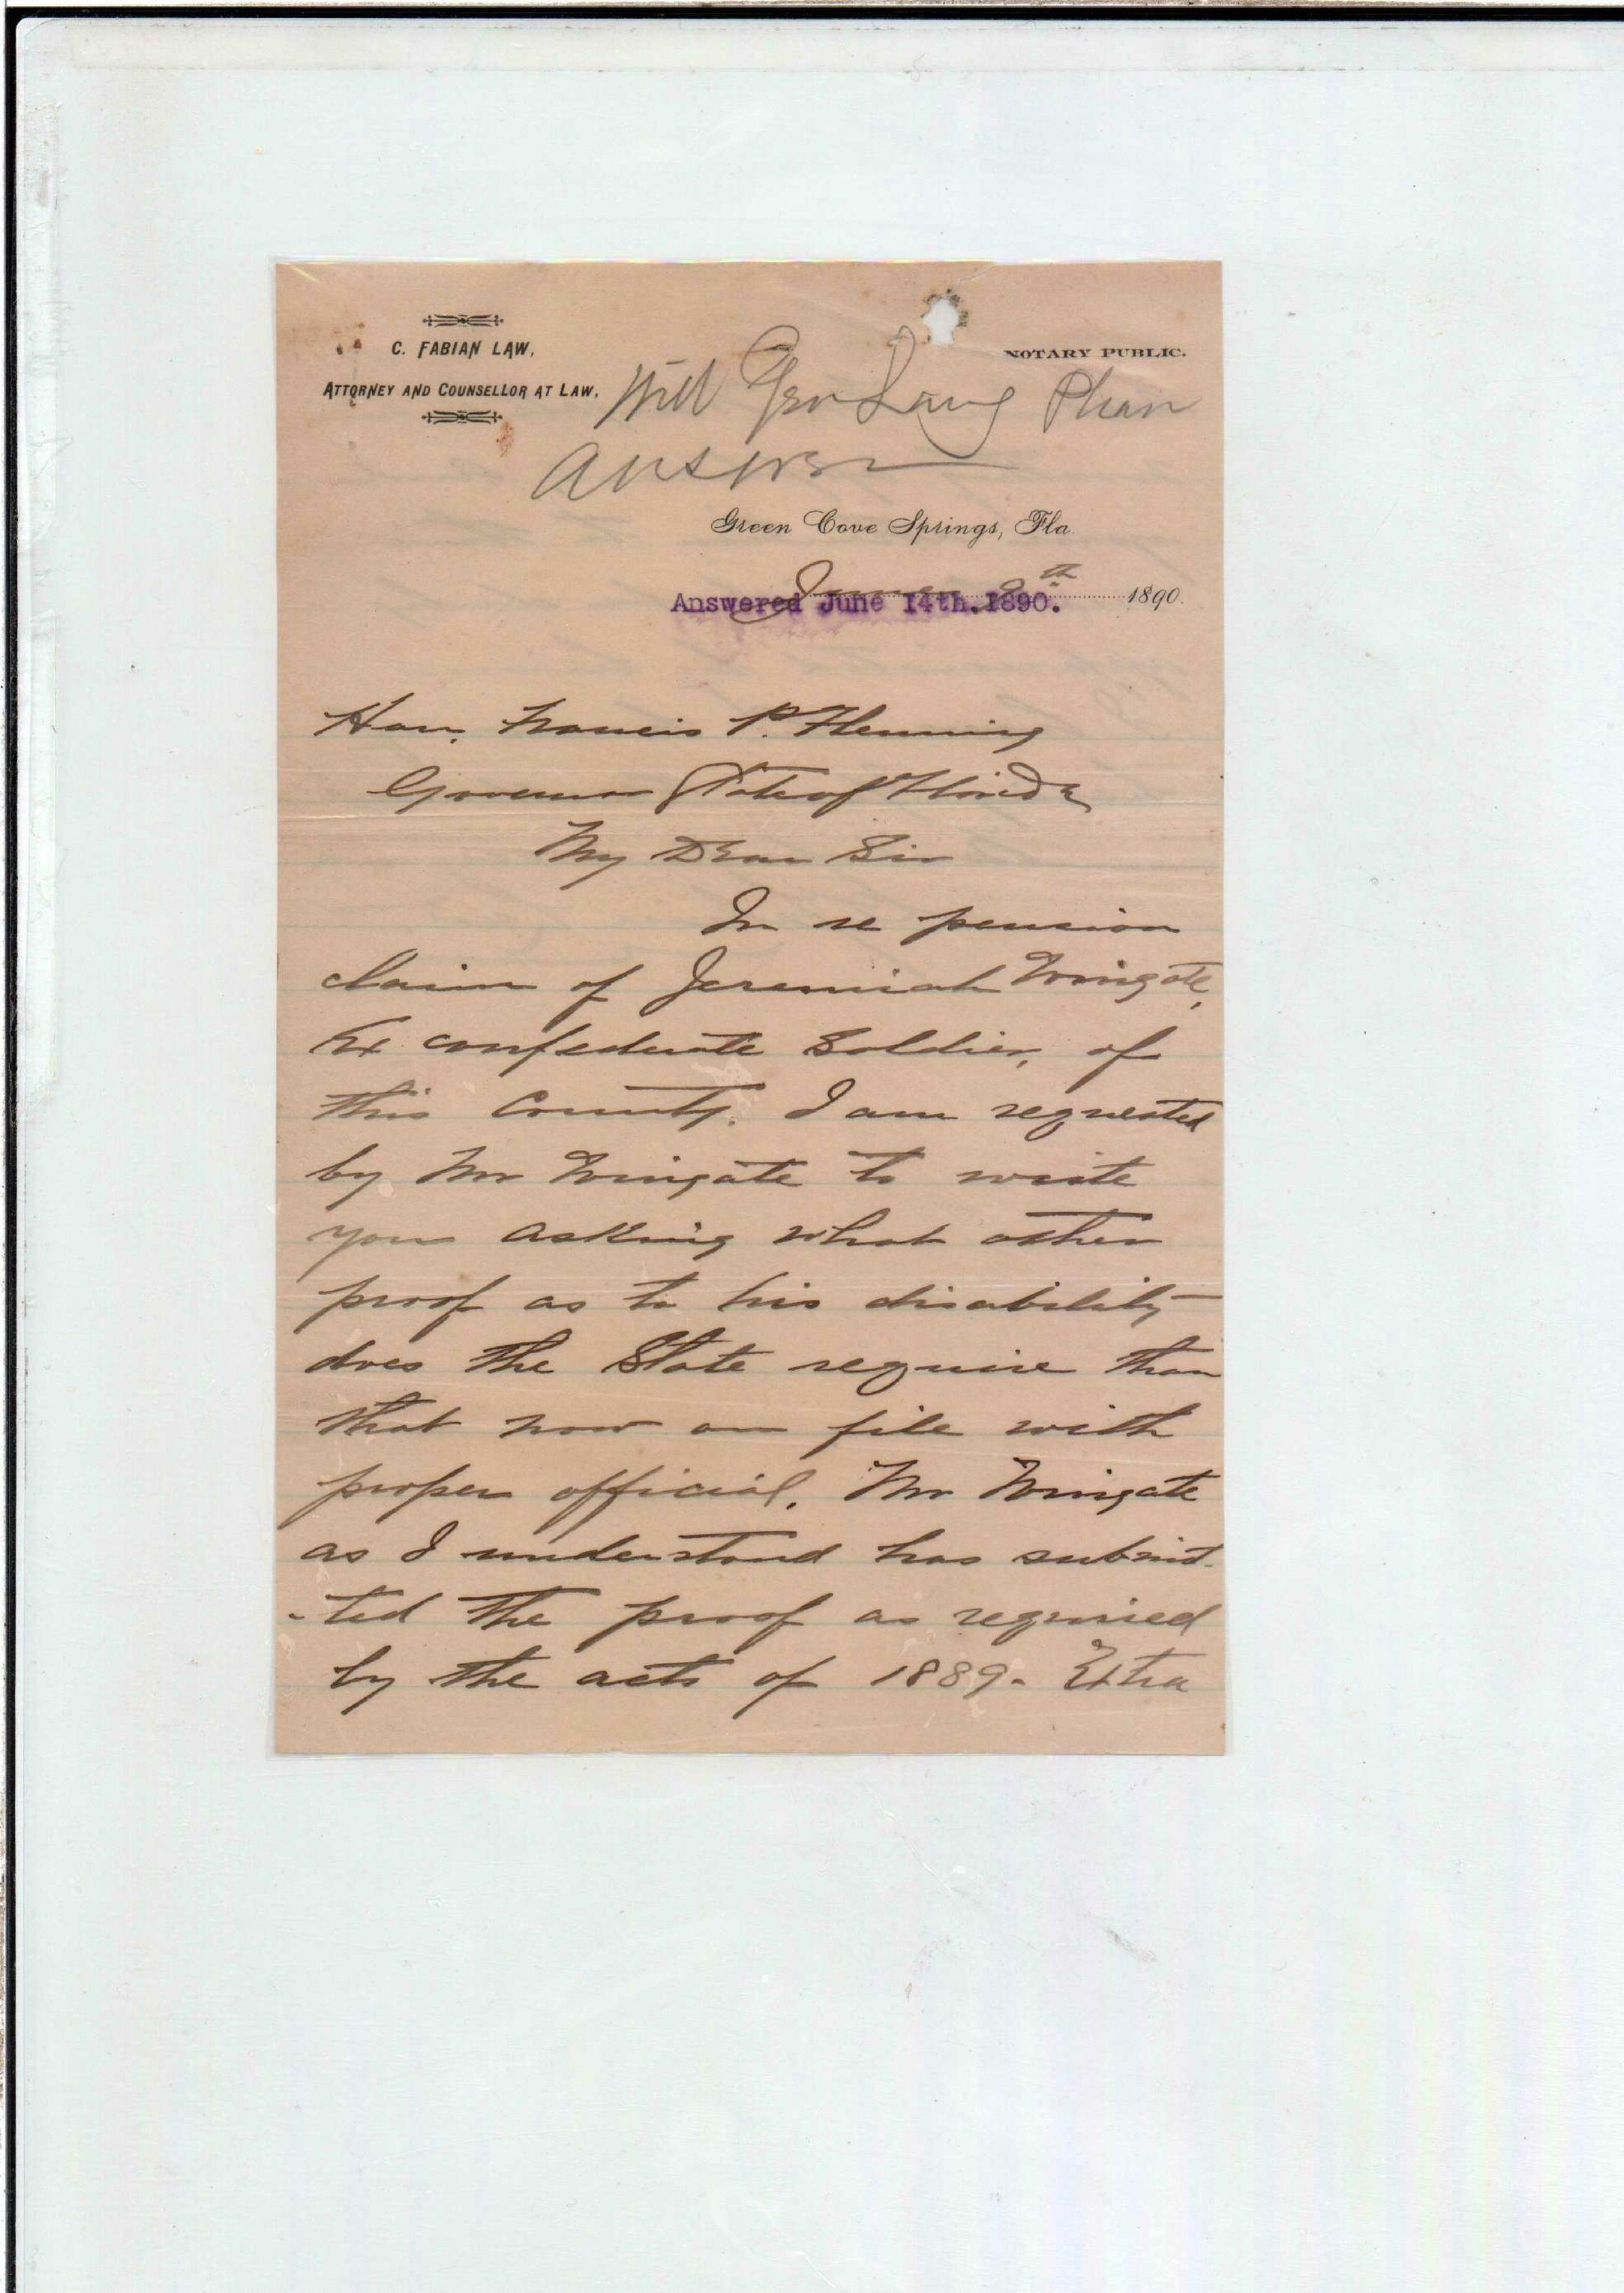 C. FABIAN LAW,
NOTARY PUBLIC.
ATTORNEY AND COUNSELLOR AT LAW.
Will Gen Lang Pleas
answer
Green Cove Springs, Fla.
June 8th 1890.
Answered June 14th.1890.
Hon. Francis P. Fleming
Governor State of Florida
My Dear Sir
In re pension
claim of Jeremiah Wingate,
Ex confederate Soldier, of
this County. I am requested
by Mr Wingate to write
you asking what other
proof as to his disability
does the State require than
that now on file with
proper official. Mr Wingate
as I understand has submit-
-ted the proof as required
by the acts of 1889. Extra